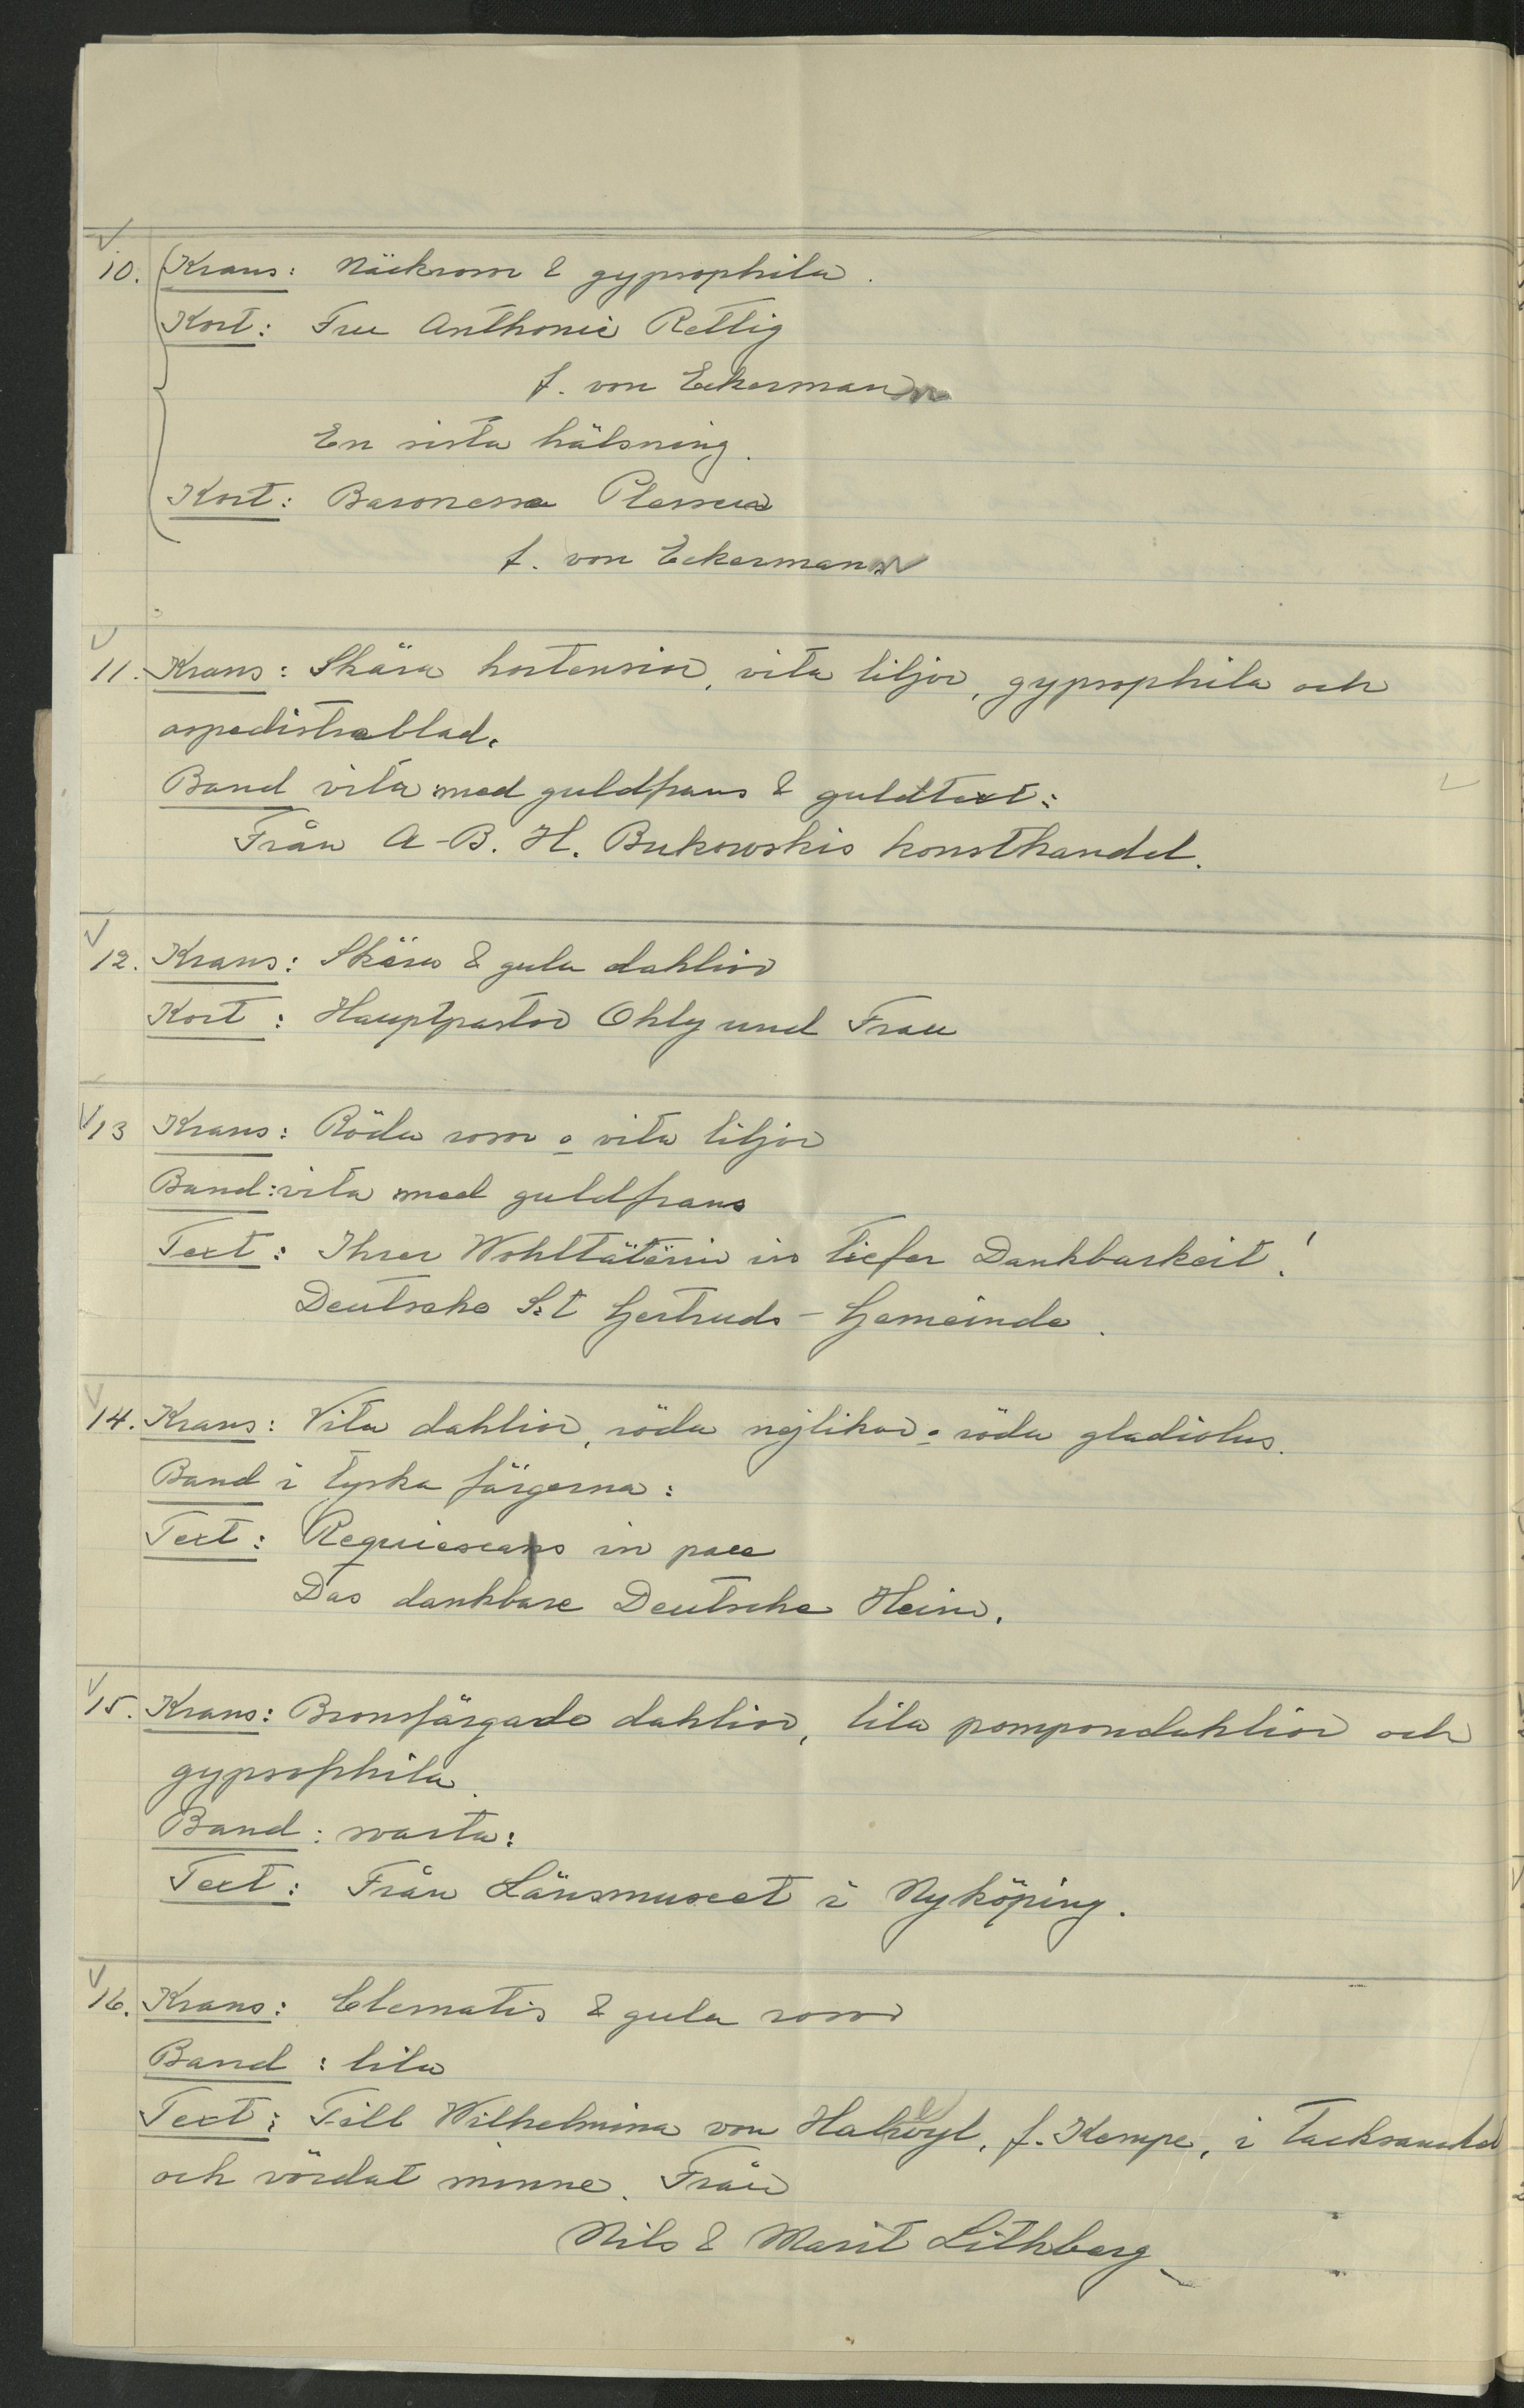 10. Krans: Näckrosor & gypsophila.
Kort: Fru Anthonie Rettig
f. von Eckermann
En sista hälsning.
Kort: Baronessa Plessen
f. von Eckermann
11. Krans: Skära hortensior, vita liljor, gypsophila och
aspedistrablad.
Band vita med guldfrans & guldtext:
Från A-B. H. Bukowskis konsthandel.
12. Krans: Skära & gula dahlior
Kort: Hauptpastor Ohly und Frau
13 Krans: Röda rosor o vita liljor
Band: vita med guldfrans
Text: Ihrer Wohltäterin in tiefer Dankbarkeit!
Deutsche S:t Gertruds-Gemeinde.
14. Krans: Vita dahlior, röda nejlikor o röda gladiolus.
Band i tyska färgerna:
Text: in pace
Das dankbare Deutsche Heim.
15. Krans: Bronsfärgade dahlior, lila pompondahlior och
gypsophila.
Band: svarta:
Text: Från Länsmuseet i Nyköping.
16. Krans: Clematis & gula rosor
Band: lila
Text: Till Wilhelmina von Hallwyl, f. Kempe, i tacksamhet
och vördat minne. Från
Nils & Marit Lithberg